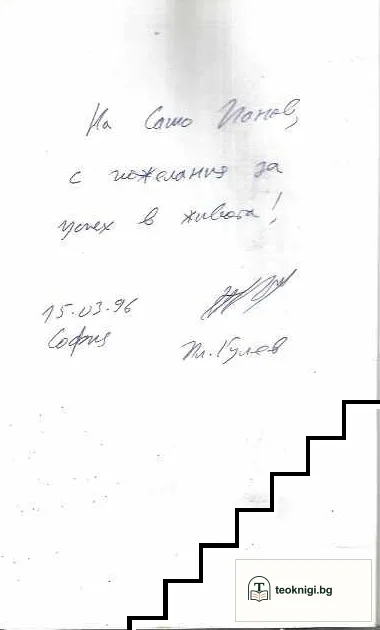 На Сашо Панов,
с пожелания за
успех в живота!
15.03.96
София
Пл. Гулев
teoknigi.bg